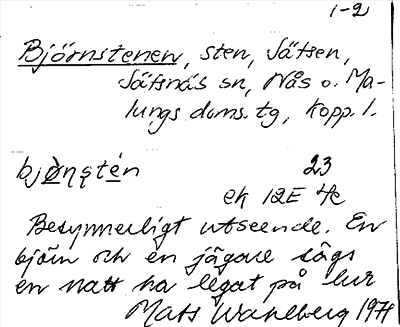 1-2
Björnstenen, sten, Sätsen,
Säfsnäs sn, Nås o. Ma-
lungs doms. tg, Kopp. l.
23
ek 12E 4c
Besynnerligt utseende. En
björn och en jägare sägs
en natt ha legat på lur
Mats Wahlberg 1971